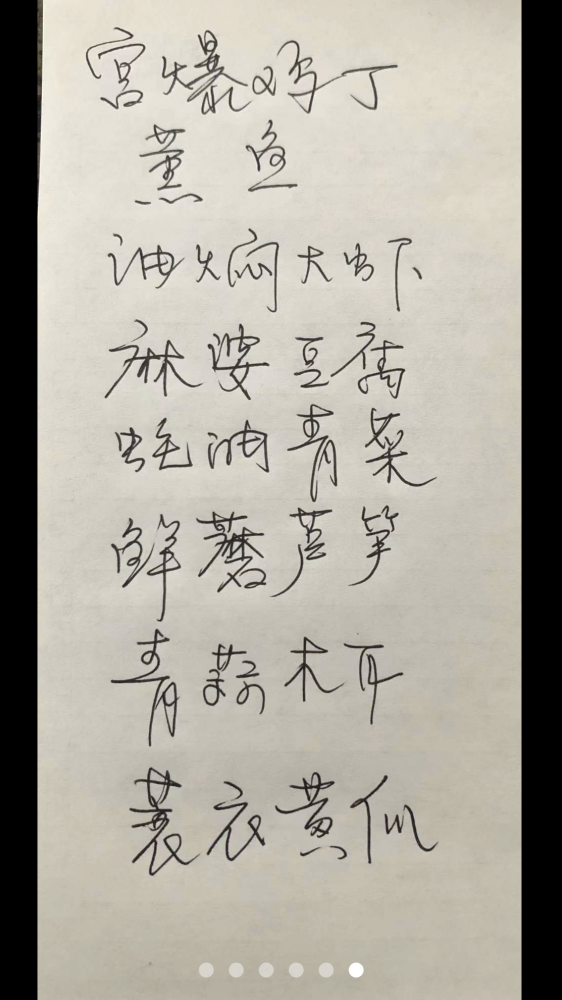 宫爆鸡丁
熏鱼
油焖大虾
麻婆豆腐
蚝油青菜
鲜蘑芦笋
青蒜木耳
蓑衣黄瓜